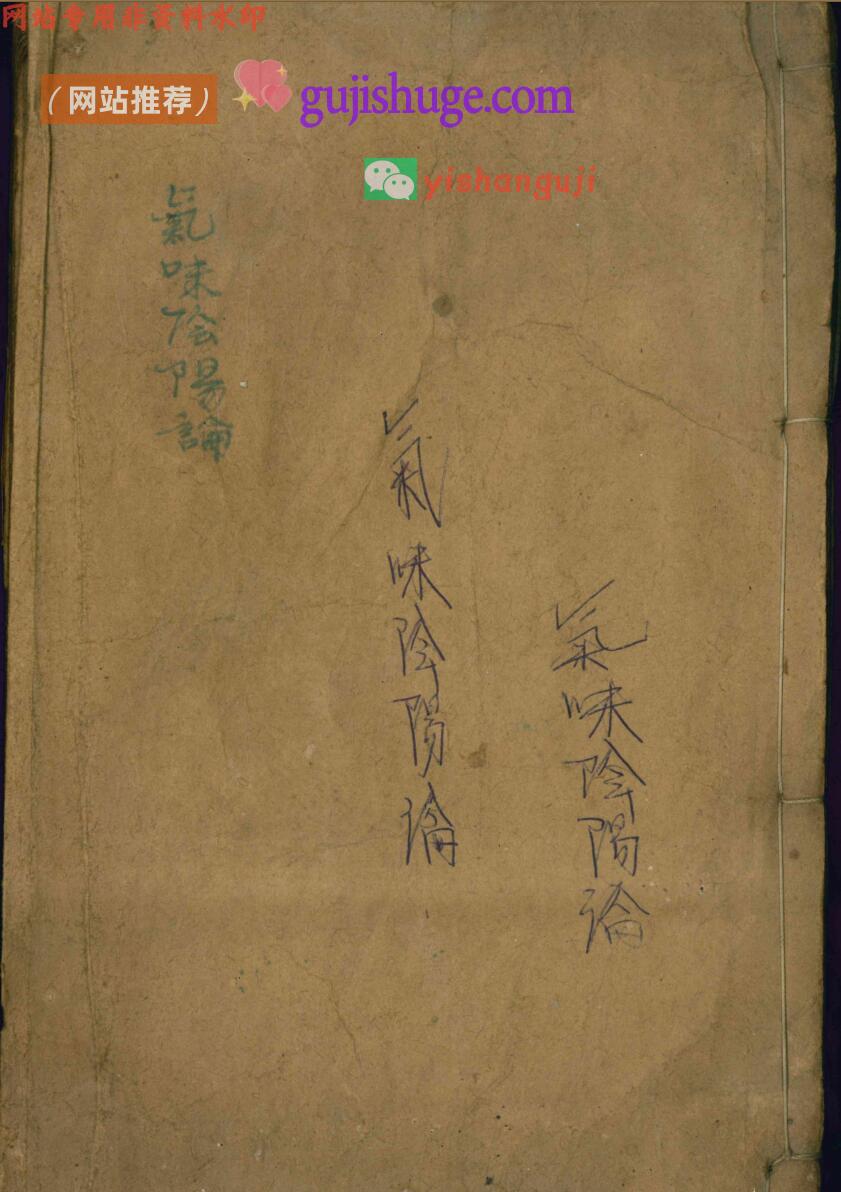 网站专用非资料水印
（网站推荐）
gujishuge.com
yishanguji
氣味陰陽論
氣味陰陽論
氣味陰陽論